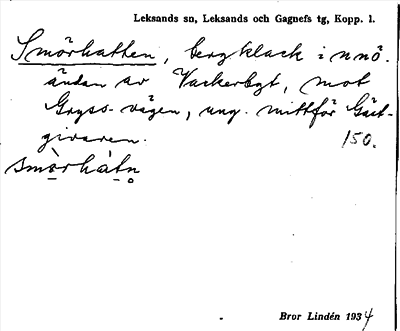 Leksands sn, Leksands och Gagnefs tg, Kopp. l.
Smörhatten, bergklack i nnö.
ändan av Vackerbyt, mot
Gryss-vägen, ung. mittför Gäst-
givaren. 150.
smòrhàtn̥
Bror Lindén 1934